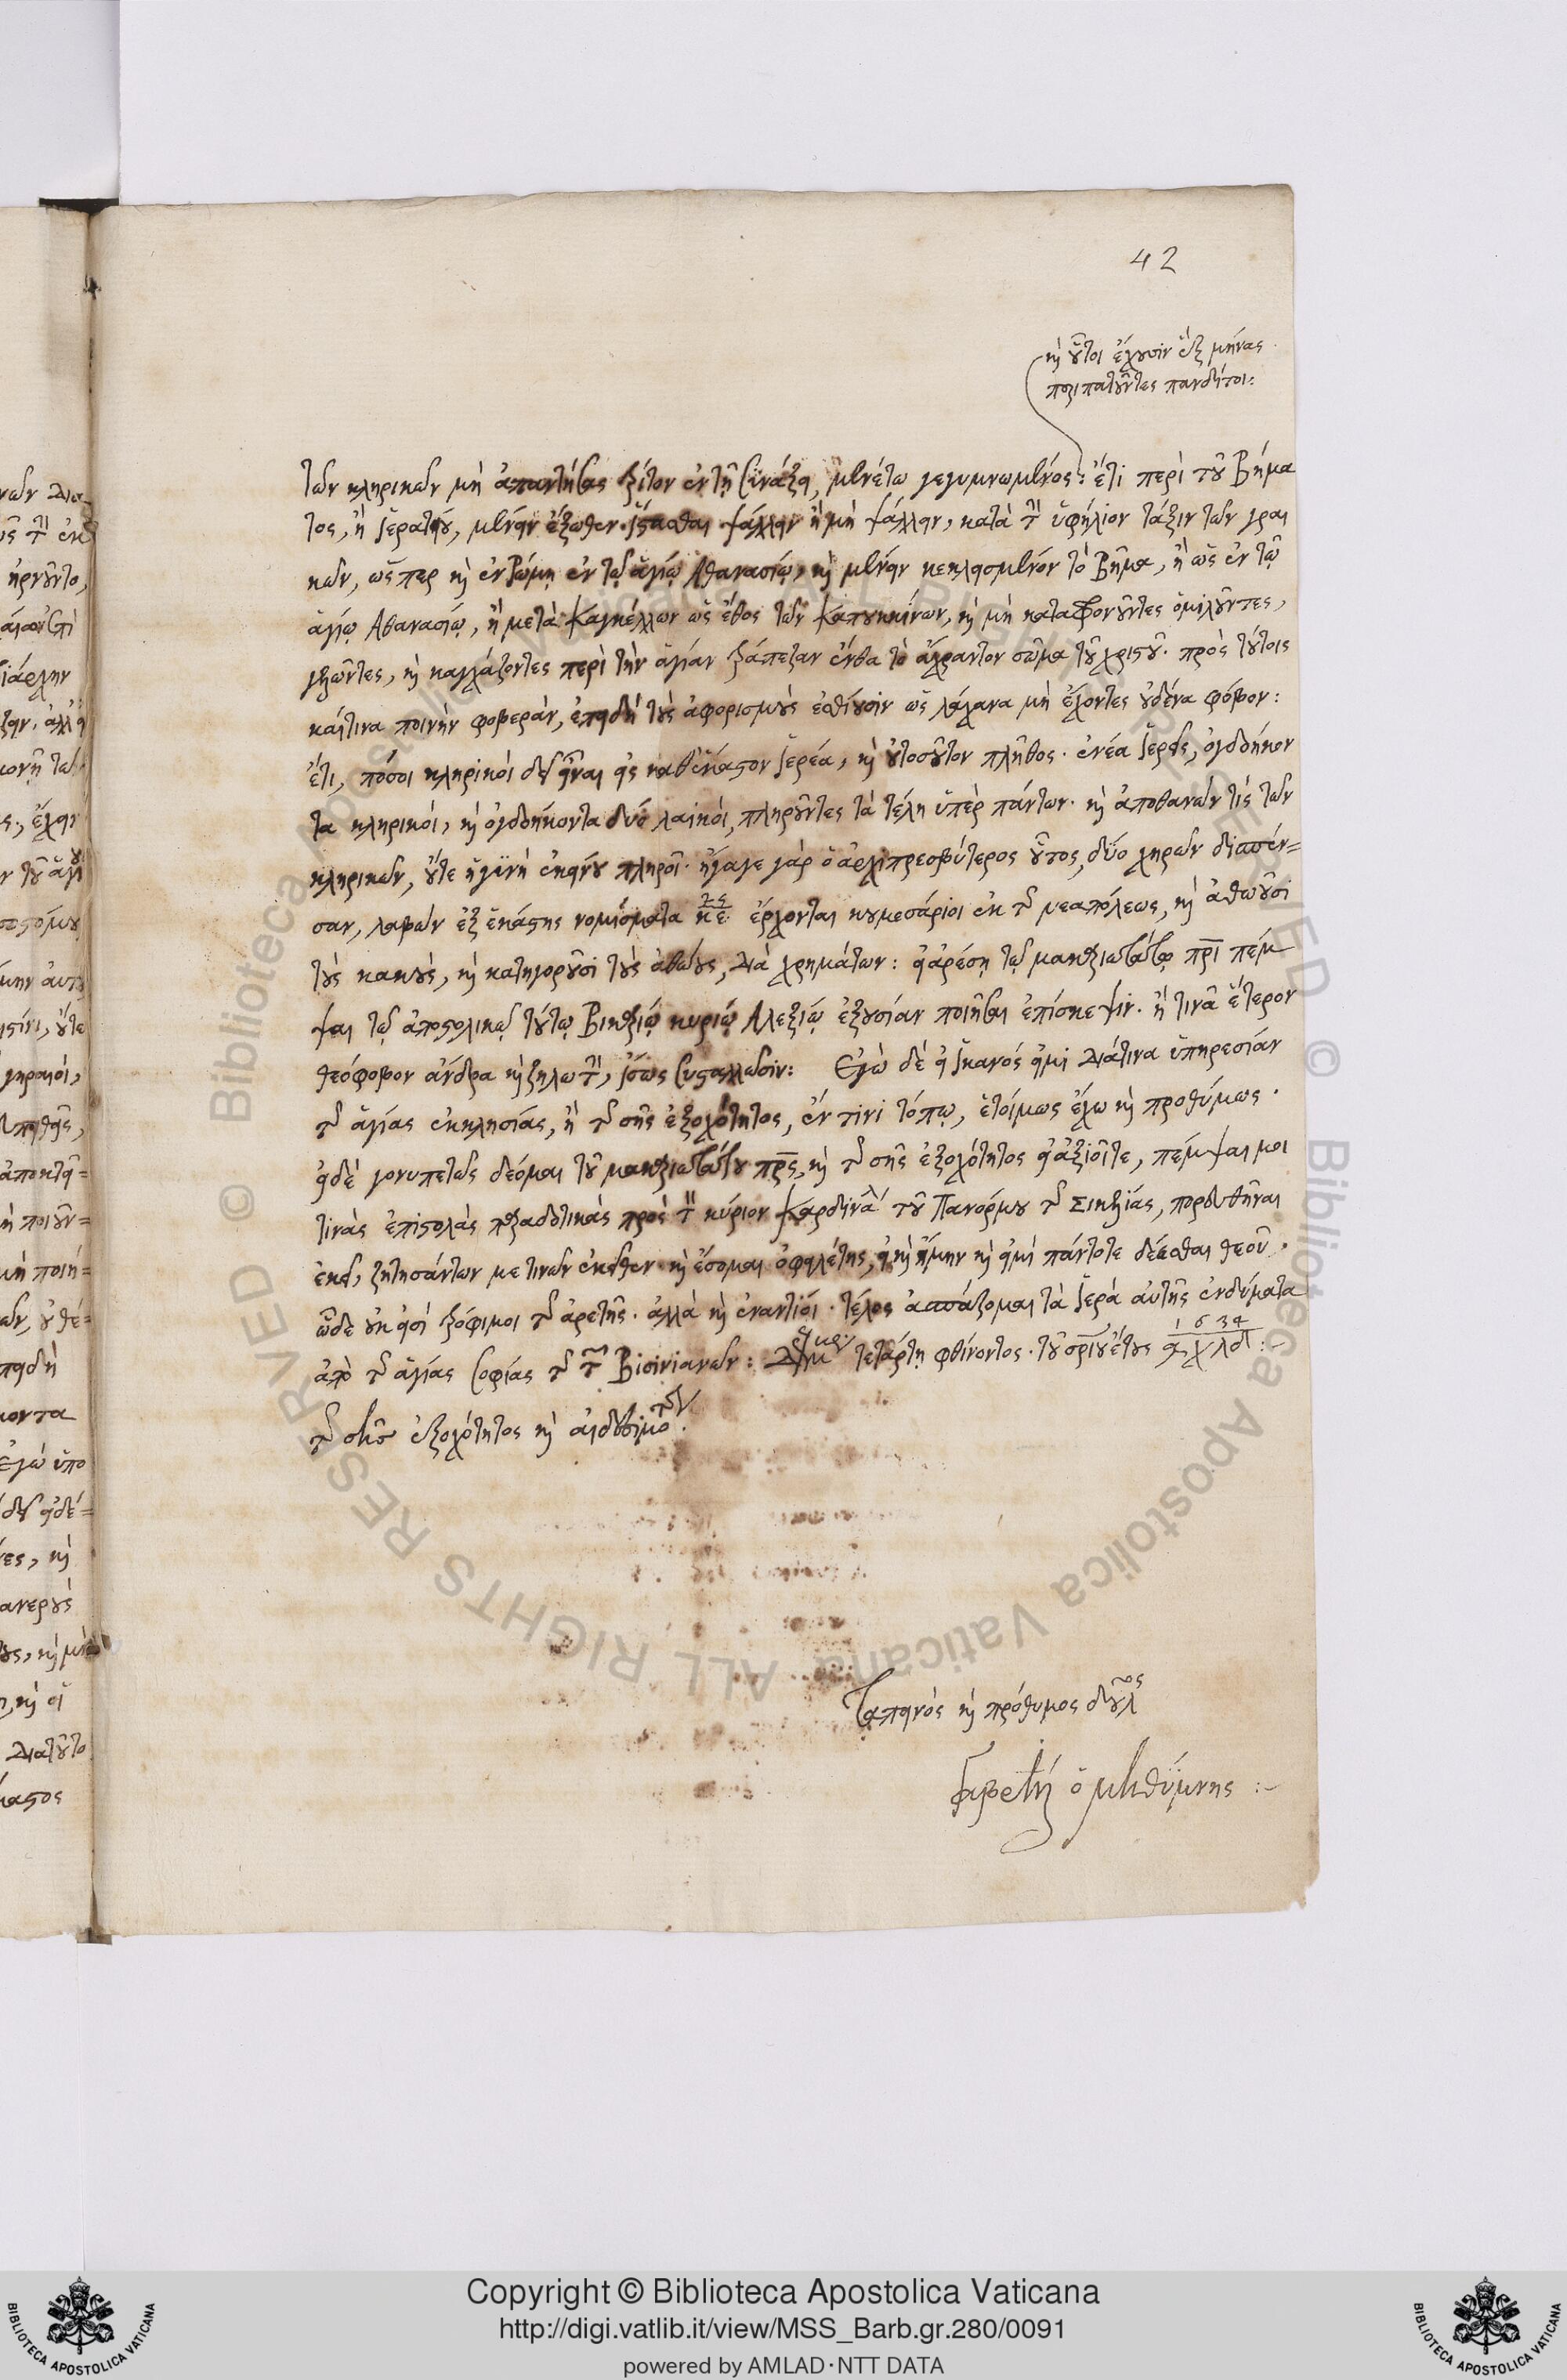 42
καὶ οὗτοι ἔχουσιν ἓξ μῆνας
περιπατοῦντες πανδήτοι:
τῶν κληρικῶν μὴ ἀπαντήσας τρίτον ἐν τῇ συνάξει, μενέτω γεγυμνωμένος: ἔτι περὶ τοῦ Βήμα
τος, ἢ ἱερατείου, μένειν ἔξωθεν ἵστασθαι ψάλλειν ἢ μὴ ψάλλειν, κατὰ τὴν ὑφήλιον τάξιν τῶν γραι
κῶν, ὥσπερ καὶ ἐν Ῥώμῃ ἐν τῷ ἁγίῳ Ἀθανασίῳ, καὶ μένειν κεκλεισμένον τὸ Βῆμα, ἢ ὡς ἐν τῷ
ἁγίῳ Ἀθανασίῳ, ἢ μετὰ Καγκέλλων ὡς ἔθος τῶν Καπουκκίνων, καὶ μὴ καταφρονοῦντες ὁμιλοῦντες,
γελῶντες, καὶ καγχάζοντες περὶ τὴν ἁγίαν τράπεζαν ἔνθα τὸ ἄχραντον σῶμα τοῦ χριστοῦ. πρὸς τούτοις
καί τινα ποινὴν φοβερὰν, ἐπειδὴ τοὺς ἀφορισμοὺς ἐσθίουσιν ὡς λάχανα μὴ ἔχοντες οὐδένα φόβον:
ἔτι, πόσοι κληρικοὶ δεῖ εἶναι εἰς καθέκαστον ἱερέα, καὶ οὐ τοσοῦτον πλῆθος. ἐνέα ἱερεῖς, ὀγδοήκον
τα κληρικοὶ, καὶ ὀγδοήκοντα δύο λαϊκοὶ, πληροῦντες τὰ τέλη ὑπὲρ πάντων. καὶ ἀποθανών τις τῶν
κληρικῶν, οὔτε ἡ γυνὴ ἐκείνου πληροῖ. ἤγαγε γὰρ ὁ ἀρχιπρεσβύτερος οὗτος, δύο χηρῶν διαπέν=
σαν, λαβὼν ἐξ ἑκάστης νομίσματα κε 25 ἔρχονται κουμεσάριοι ἐκ τῆς νεαπόλεως, καὶ ἀθωοῦσι
τοὺς κακοὺς, καὶ κατηγοροῦσι τοὺς ἀθώους, διὰ χρημάτων: εἰ ἀρέσῃ τῷ μακαριωτάτῳ πρὶ πέμ
ψαι τῷ ἀποστολικῷ τούτῳ Βικαρίῳ κυρίῳ Ἀλεξίῳ ἐξουσίαν ποιῆσαι ἐπίσκεψιν. ἤ τινα ἕτερον
θεόφοβον ἄνδρα καὶ ζηλωτὴν, ἴσως συσταλλῶσιν: Ἐγὼ δὲ εἰ ἱκανός εἰμι διά τινα ὑπηρεσίαν
τῆς ἁγίας ἐκκλησίας, ἢ τῆς σῆς ἐξοχότητος, ἔν τινι τόπῳ, ἑτοίμως ἔχω καὶ προθύμως.
εἰ δὲ γονυπετῶς δέομαι τοῦ μακαριωτάτου πρς, καὶ τῆς σῆς ἐξοχότητος εἰ ἀξιοῖτε, πέμψαι μοι
τινὰς ἐπιστολὰς πρὸς τὸν κύριον Καρδινάλ τοῦ Πανόρμου τῆς Σικελίας, πορευθῆναι
ἐκεῖ, ζητησάντων με τινῶν ἐκεῖθεν καὶ ἔσομαι ὀφειλέτης, εἰ καὶ ἤμην καὶ εἰμὶ πάντοτε δέεσθαι θεοῦ.
ὧδε οὐκ εἰσὶ τρόφιμοι τῆς ἀρετῆς. ἀλλὰ καὶ ἐναντίοι. τέλος ἀσπάζομαι τὰ ἱερὰ αὐτῆς ἐνδύματα
ἀπὸ τῆς ἁγίας σοφίας τῆς τῶν Βισινιανῶν: τετάρτῃ φθίνοντος. τοῦ σρίου ἔτους αχλδ 1634 :~
τῆς σῆς ἐξοχότητος καὶ αἰδεσιμότ.
Ταπεινὸς καὶ πρόθυμος δοῦλος
ὁ μηθύμνης :~
Copyright © Biblioteca Apostolica Vaticana
http://digi.vatlib.it/view/MSS_Barb.gr.280/0091
powered by AMLAD·NTT DATA